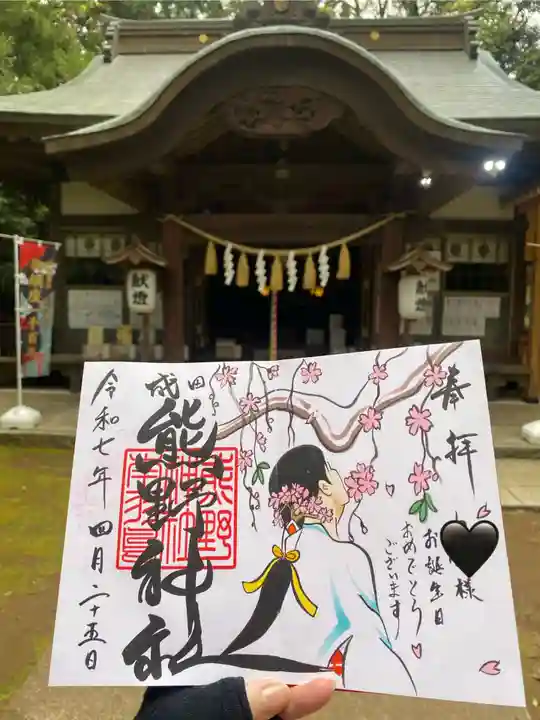 奉拝
様
お誕生日
おめでとう
ございます
成田
熊野神社
令和七年 四月二十五日
献燈
献燈